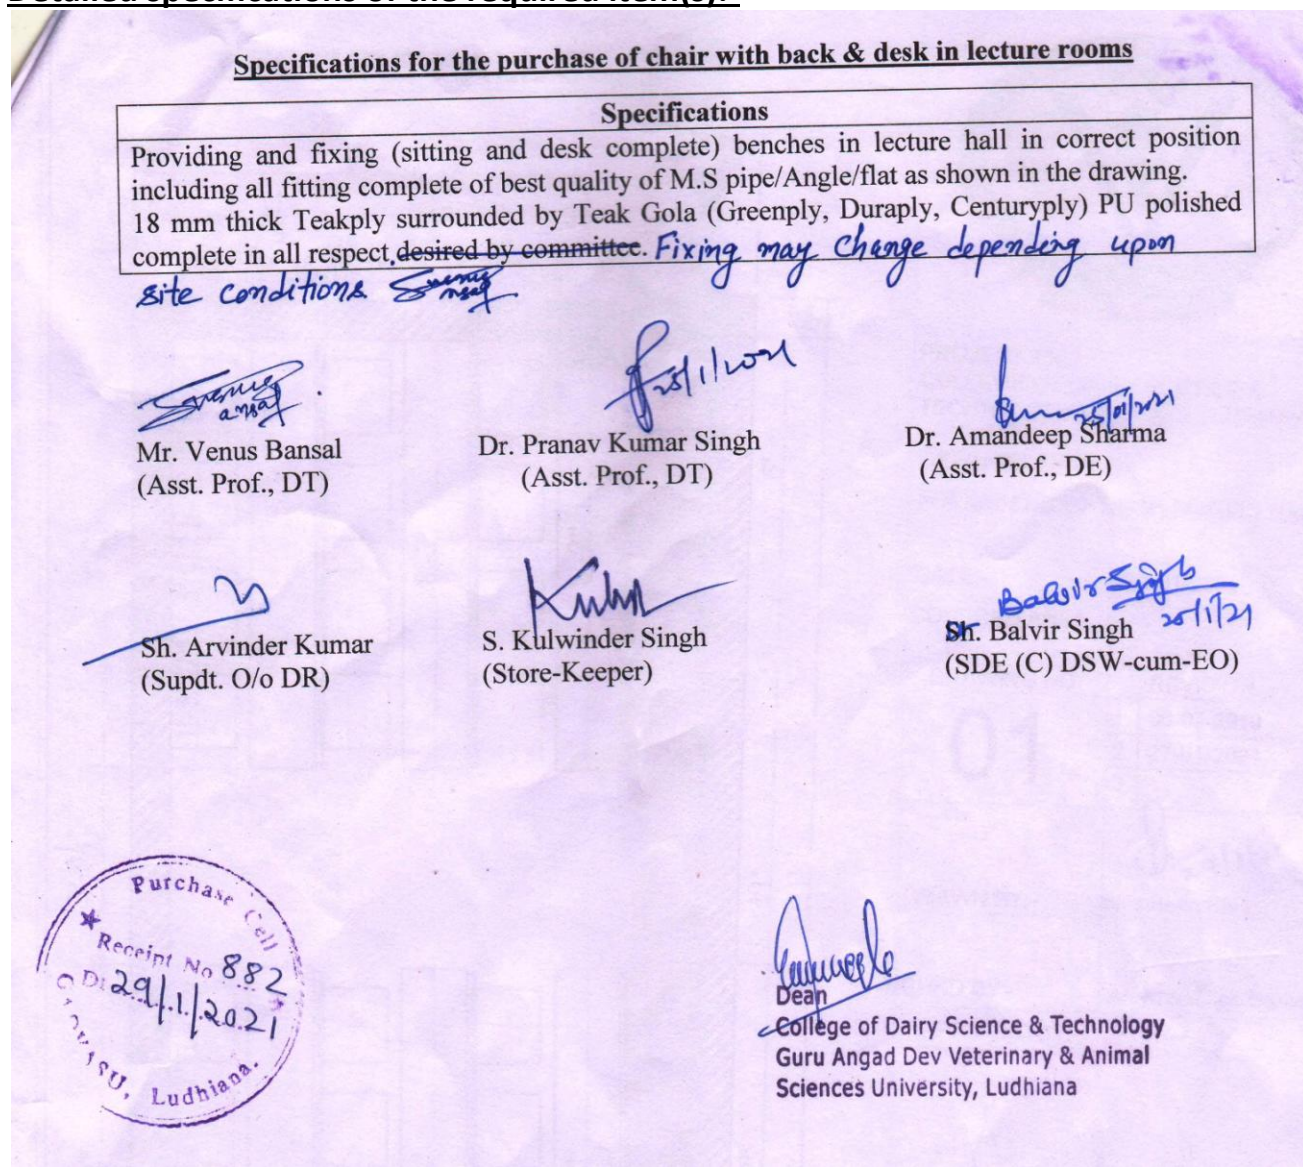 Detailed specifications of the required item(s):
Specifications for the purchase of chair with back & desk in lecture rooms
Specifications
Providing and fixing (sitting and desk complete) benches in lecture hall in correct position
including all fitting complete of best quality of M.S pipe/Angle/flat as shown in the drawing.
18 mm thick Teakply surrounded by Teak Gola (Greenply, Duraply, Centuryply) PU polished
complete in all respect, desired by committee. Fixing may change depending upon
site conditions
25/1/2021
25/01/2021
Mr. Venus Bansal
(Asst. Prof., DT)
Dr. Pranav Kumar Singh
(Asst. Prof., DT)
Dr. Amandeep Sharma
(Asst. Prof., DE)
Balvir Singh
Sh. Arvinder Kumar
(Supdt. O/o DR)
S. Kulwinder Singh
(Store-Keeper)
Balvir Singh
(SDE (C) DSW-cum-EO)
Purchase Cell
Receipt No 882
Dt. 29/1/2021
GADVASU, Ludhiana.
Dean
College of Dairy Science & Technology
Guru Angad Dev Veterinary & Animal
Sciences University, Ludhiana